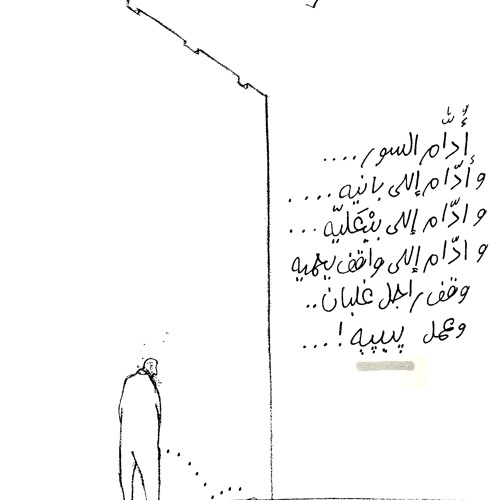 أُدّام السور....
وأدّام إللى بانيه....
وادّام إللى بيْعَليّه...
وادّام إللى واقف يحميه
وقف راجل غلبان..
وعمل پيپيه!...